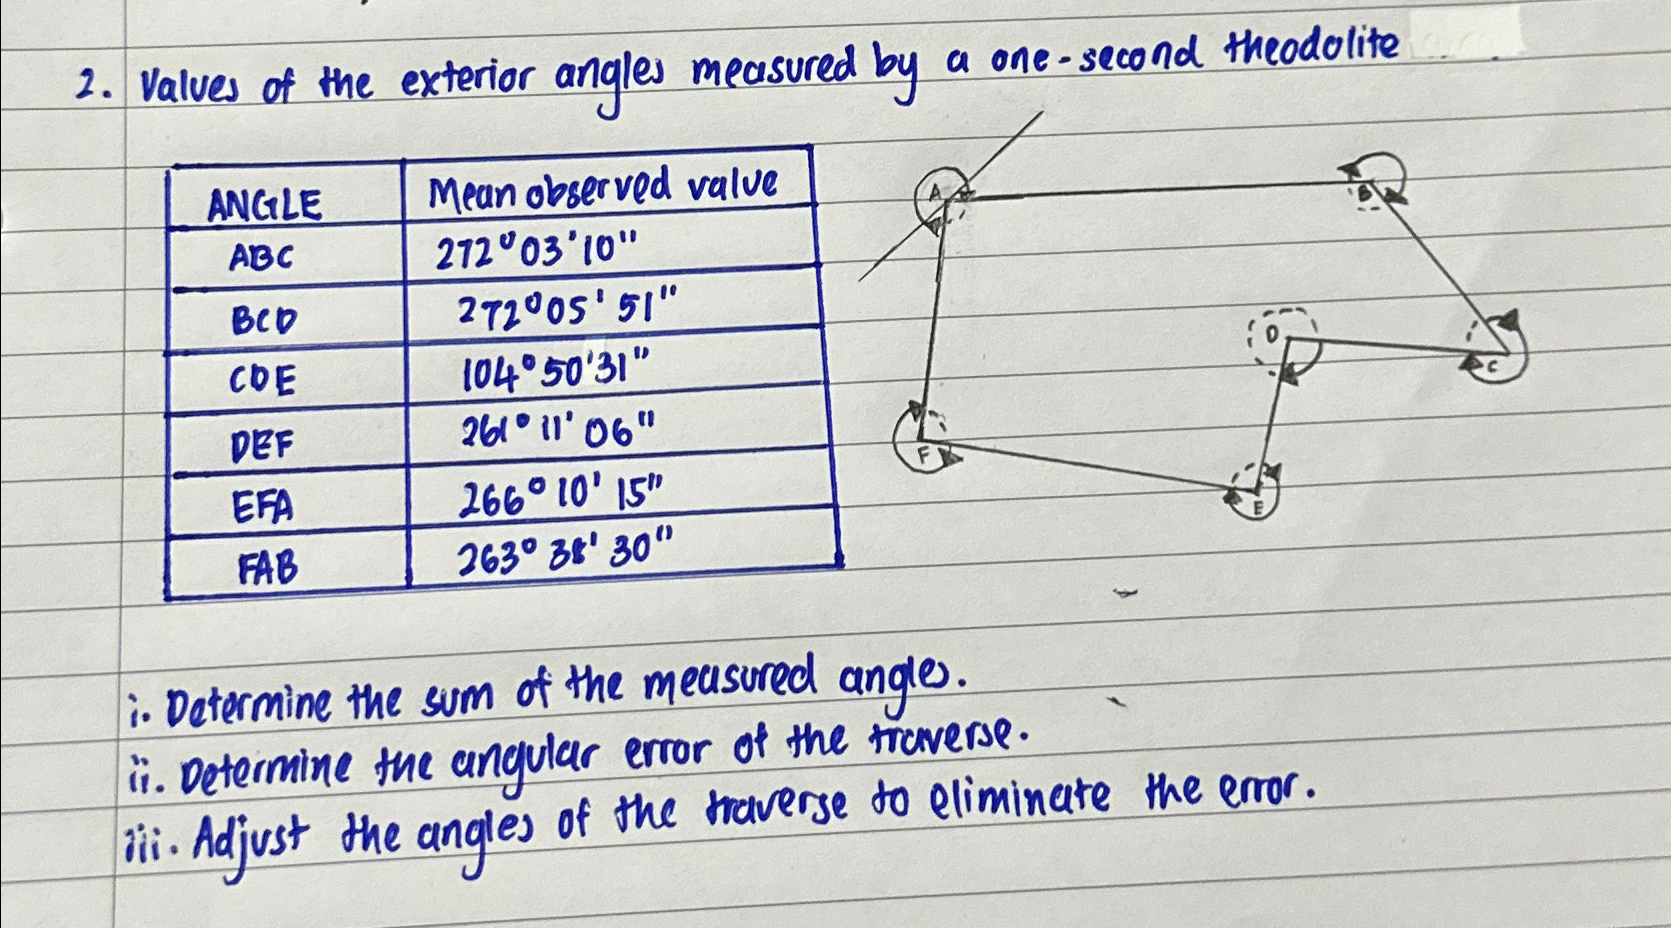 2. Values of the exterior angles measured by a one-second theodolite
ANGLE Mean observed value
ABC 272°03'10"
BCD 272°05'51"
CDE 104°50'31"
DEF 261°11'06"
EFA 266°10'15"
FAB 263°38'30"
A
B
D
C
F
E
i. Determine the sum of the measured angles.
ii. Determine the angular error of the traverse.
iii. Adjust the angles of the traverse to eliminate the error.